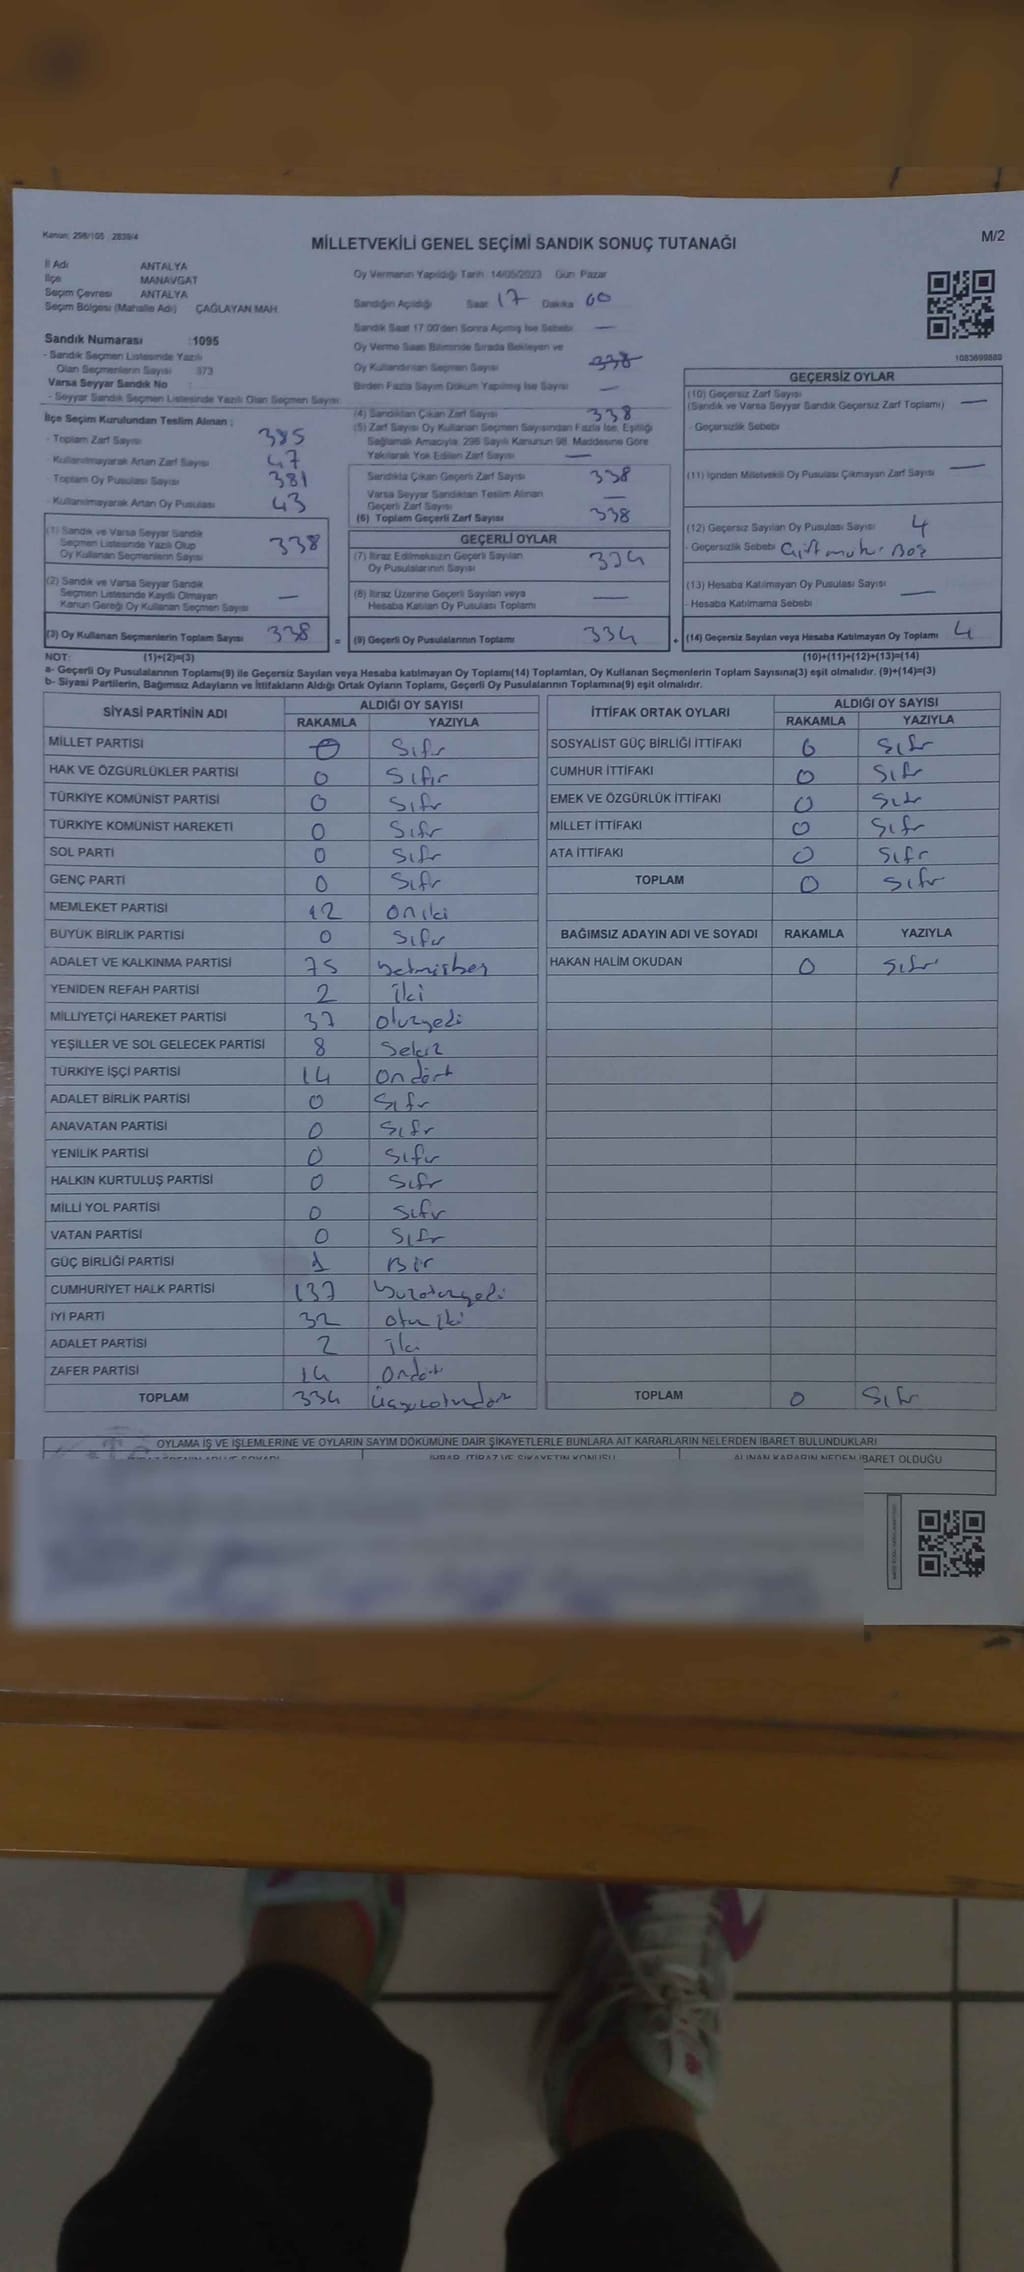 Kanun: 298/105 2839/4
MİLLETVEKİLİ GENEL SEÇİMİ SANDIK SONUÇ TUTANAĞI
M/2
İl Adı ANTALYA
İlçe MANAVGAT
Seçim Çevresi ANTALYA
Seçim Bölgesi (Mahalle Adı) ÇAĞLAYAN MAH
Sandık Numarası :1095
- Sandık Seçmen Listesinde Yazılı
Olan Seçmenlerin Sayısı 373
Varsa Seyyar Sandık No :
- Seyyar Sandık Seçmen Listesinde Yazılı Olan Seçmen Sayısı:
Oy Vermenin Yapıldığı Tarih :14/05/2023 Gün Pazar
Sandığın Açıldığı Saat 17 Dakika 00
Sandık Saat 17.00'den Sonra Açılmış İse Sebebi —
Oy Verme Saati Bitiminde Sırada Bekleyen ve
Oy Kullandırılan Seçmen Sayısı 338
Birden Fazla Sayım Döküm Yapılmış İse Sayısı —
1083699889
İlçe Seçim Kurulundan Teslim Alınan ;
- Toplam Zarf Sayısı 385
- Kullanılmayarak Artan Zarf Sayısı 47
- Toplam Oy Pusulası Sayısı 381
- Kullanılmayarak Artan Oy Pusulası 43
(1) Sandık ve Varsa Seyyar Sandık
Seçmen Listesinde Yazılı Olup
Oy Kullanan Seçmenlerin Sayısı 338
(2) Sandık ve Varsa Seyyar Sandık
Seçmen Listesinde Kayıtlı Olmayan
Kanun Gereği Oy Kullanan Seçmen Sayısı —
(3) Oy Kullanan Seçmenlerin Toplam Sayısı 338 =
(4) Sandıktan Çıkan Zarf Sayısı 338
(5) Zarf Sayısı Oy Kullanan Seçmen Sayısından Fazla İse, Eşitliği
Sağlamak Amacıyla, 298 Sayılı Kanunun 98. Maddesine Göre
Yakılarak Yok Edilen Zarf Sayısı —
Sandıkta Çıkan Geçerli Zarf Sayısı 338
Varsa Seyyar Sandıktan Teslim Alınan
Geçerli Zarf Sayısı —
(6) Toplam Geçerli Zarf Sayısı 338
GEÇERLİ OYLAR
(7) İtiraz Edilmeksizin Geçerli Sayılan
Oy Pusulalarının Sayısı 334
(8) İtiraz Üzerine Geçerli Sayılan veya
Hesaba Katılan Oy Pusulası Toplamı —
(9) Geçerli Oy Pusulalarının Toplamı 334 +
GEÇERSİZ OYLAR
(10) Geçersiz Zarf Sayısı
(Sandık ve Varsa Seyyar Sandık Geçersiz Zarf Toplamı) —
- Geçersizlik Sebebi
(11) İçinden Milletvekili Oy Pusulası Çıkmayan Zarf Sayısı —
(12) Geçersiz Sayılan Oy Pusulası Sayısı 4
- Geçersizlik Sebebi Çift mühür Boş
(13) Hesaba Katılmayan Oy Pusulası Sayısı —
- Hesaba Katılmama Sebebi
(14) Geçersiz Sayılan veya Hesaba Katılmayan Oy Toplamı 4
NOT: (1)+(2)=(3)
(10)+(11)+(12)+(13)=(14)
a- Geçerli Oy Pusulalarının Toplamı(9) ile Geçersiz Sayılan veya Hesaba katılmayan Oy Toplamı(14) Toplamları, Oy Kullanan Seçmenlerin Toplam Sayısına(3) eşit olmalıdır. (9)+(14)=(3)
b- Siyasi Partilerin, Bağımsız Adayların ve İttifakların Aldığı Ortak Oyların Toplamı, Geçerli Oy Pusulalarının Toplamına(9) eşit olmalıdır.
SİYASİ PARTİNİN ADI ALDIĞI OY SAYISI
RAKAMLA YAZIYLA
MİLLET PARTİSİ 0 Sıfır
HAK VE ÖZGÜRLÜKLER PARTİSİ 0 Sıfır
TÜRKİYE KOMÜNİST PARTİSİ 0 Sıfır
TÜRKİYE KOMÜNİST HAREKETİ 0 Sıfır
SOL PARTİ 0 Sıfır
GENÇ PARTİ 0 Sıfır
MEMLEKET PARTİSİ 12 oniki
BÜYÜK BİRLİK PARTİSİ 0 Sıfır
ADALET VE KALKINMA PARTİSİ 75 yetmişbeş
YENİDEN REFAH PARTİSİ 2 iki
MİLLİYETÇİ HAREKET PARTİSİ 37 otuzyedi
YEŞİLLER VE SOL GELECEK PARTİSİ 8 Sekiz
TÜRKİYE İŞÇİ PARTİSİ 14 ondört
ADALET BİRLİK PARTİSİ 0 Sıfır
ANAVATAN PARTİSİ 0 Sıfır
YENİLİK PARTİSİ 0 Sıfır
HALKIN KURTULUŞ PARTİSİ 0 Sıfır
MİLLİ YOL PARTİSİ 0 Sıfır
VATAN PARTİSİ 0 Sıfır
GÜÇ BİRLİĞİ PARTİSİ 1 Bir
CUMHURİYET HALK PARTİSİ 137 yüzotuzyedi
İYİ PARTİ 32 otuziki
ADALET PARTİSİ 2 iki
ZAFER PARTİSİ 14 Ondört
TOPLAM 334 üçyüzotuzdört
İTTİFAK ORTAK OYLARI ALDIĞI OY SAYISI
RAKAMLA YAZIYLA
SOSYALİST GÜÇ BİRLİĞİ İTTİFAKI 0 Sıfır
CUMHUR İTTİFAKI 0 Sıfır
EMEK VE ÖZGÜRLÜK İTTİFAKI 0 Sıfır
MİLLET İTTİFAKI 0 Sıfır
ATA İTTİFAKI 0 Sıfır
TOPLAM 0 Sıfır
BAĞIMSIZ ADAYIN ADI VE SOYADI RAKAMLA YAZIYLA
HAKAN HALİM OKUDAN 0 Sıfır
TOPLAM 0 Sıfır
OYLAMA İŞ VE İŞLEMLERİNE VE OYLARIN SAYIM DÖKÜMÜNE DAİR ŞİKAYETLERLE BUNLARA AİT KARARLARIN NELERDEN İBARET BULUNDUKLARI
İHBAR, İTİRAZ VE ŞİKAYETİN KONUSU ALINAN KARARIN NEDEN İBARET OLDUĞU